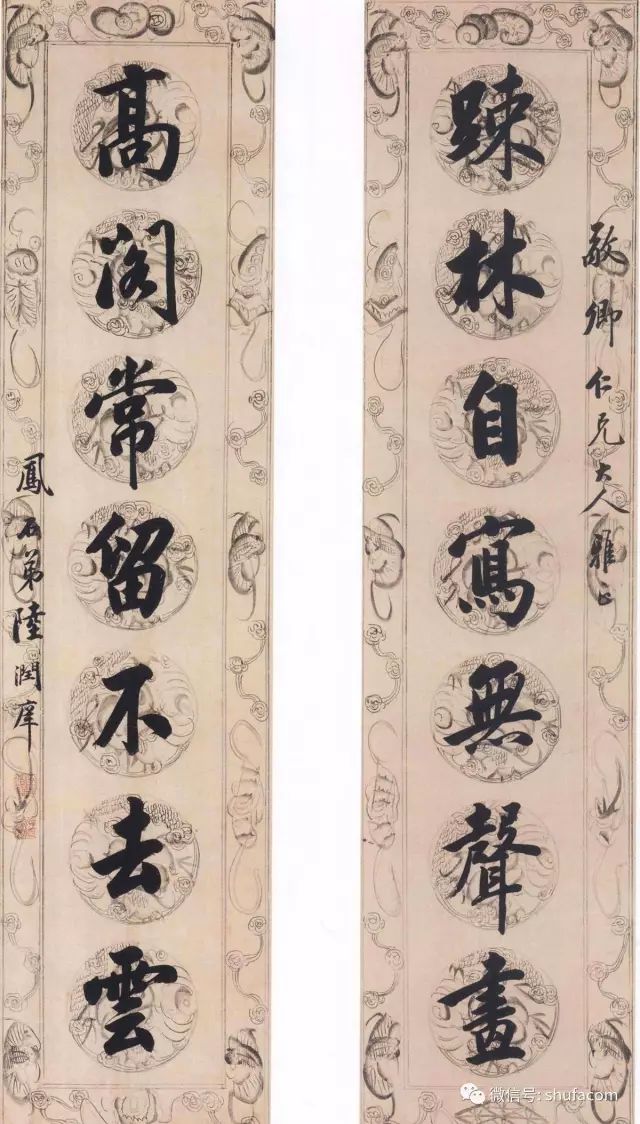 敬卿仁兄大人雅正
踈林自寫無聲畫
高閣常留不去雲
鳳石弟陸潤庠
微信号: shufacom